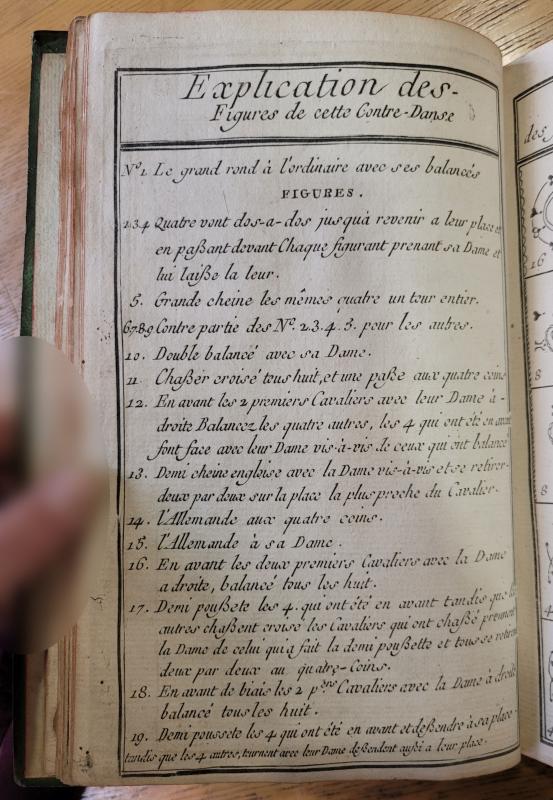 Explication des-
Figures de cette Contre-Danse
N.º 1 Le grand rond à l'ordinaire avec ses balancés
FIGURES.
2.3.4 Quatre vont dos-a-dos jusqu'à revenir a leur place et
en paßant devant Chaque figurant prenant sa Dame et
lui laiße la leur.
5. Grande cheine les mêmes quatre un tour entier.
6.7.8.9 Contre partie des Nº. 2.3.4.5. pour les autres.
10. Double balancé avec sa Dame.
11 Chaßer croisé tous huit, et une paße aux quatre coins
12. En avant les 2 premiers Cavaliers avec leur Dame à-
droite Balancez les quatre autres, les 4 qui ont été en avant
font face avec leur Dame vis-à-vis de ceux qui ont balancé
13. Demi cheine engloise avec la Dame vis-à-vis et se retirer-
deux par deux sur la place la plus proche du Cavalier.
14. l'Allemande aux quatre coins.
15. l'Allemande à sa Dame.
16. En avant les deux premiers Cavaliers avec la Dame
a droite, balancé tous les huit.
17. Demi poußete les 4. qui ont été en avant tandis que les
autres chaßent croisé les Cavaliers qui ont chaßé prennent
la Dame de celui qui a fait la demi poußette et tous se retirent
deux par deux au quatre-Coins.
18. En avant de biais les 2 p.ers Cavaliers avec la Dame à droite
balancé tous les huit.
19. Demi poussete les 4 qui ont été en avant et deßendre à sa place-
tandis que les 4 autres, tournent avec leur Dame deßendent außi a leur place.
des
16
8
8
4
4